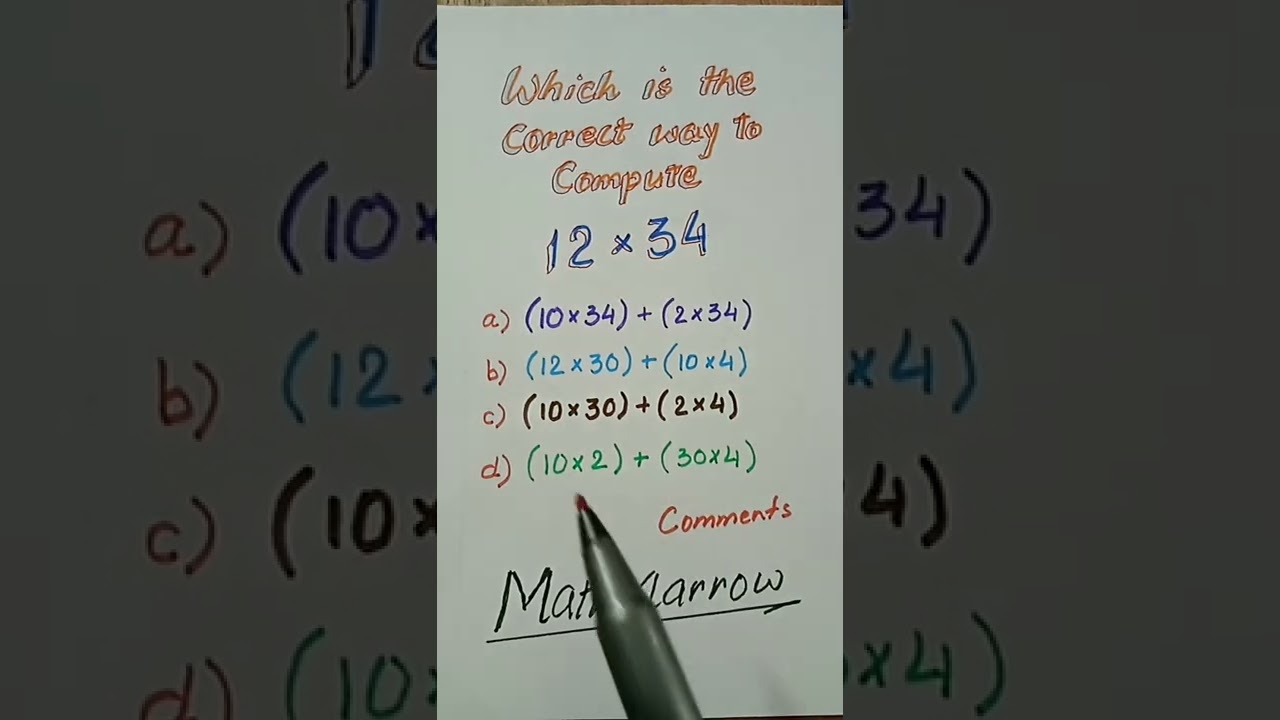 Which is the
Correct way to
Compute
12 × 34
a) (10×34) + (2×34)
b) (12×30) + (10×4)
c) (10×30) + (2×4)
d) (10×2) + (30×4)
Comments